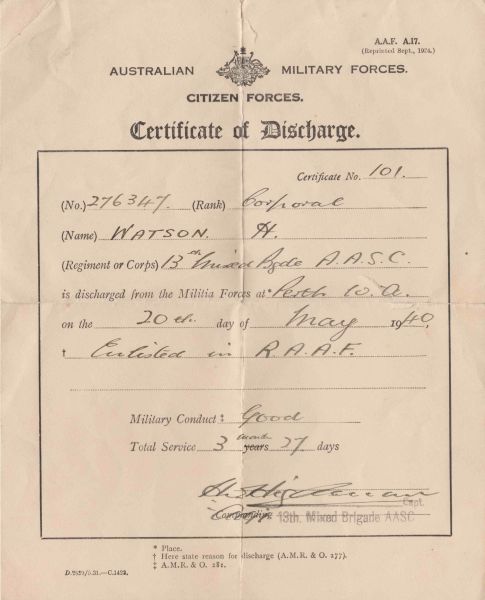 A.A.F. A.17.
(Reprinted Sept., 1924.)
AUSTRALIAN MILITARY FORCES.
CITIZEN FORCES.
Certificate of Discharge.
Certificate No. 101.
(No.) 276347. (Rank) Corporal
(Name) WATSON. H.
(Regiment or Corps) 13th Mixed Bgde A.A.S.C.
is discharged from the Militia Forces at * Perth W.A.
on the 20th day of May 1940.
† Enlisted in R.A.A.F.
Military Conduct ‡ Good
months
Total Service 3 years 27 days
Capt.
Commanding 13th. Mixed Brigade AASC
* Place.
† Here state reason for discharge (A.M.R. & O. 277).
‡ A.M.R. & O. 281.